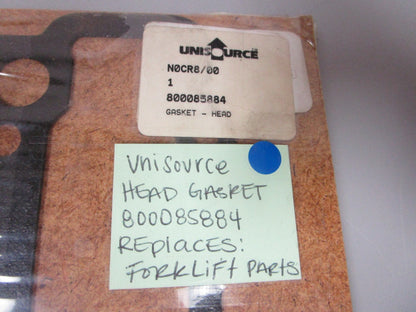 UNISOURCE
N0CR8/00
1
800085884
GASKET - HEAD
Unisource
HEAD GASKET
800085884
REPLACES:
FORKLIFT PARTS